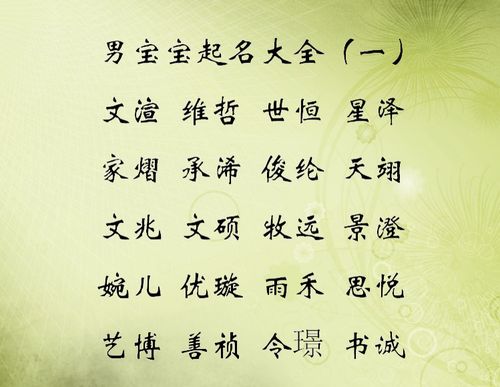 男宝宝起名大全（一）
文渲 维哲 世恒 星泽
家熠 承浠 俊纶 天翊
文兆 文硕 牧远 景澄
婉儿 优璇 雨禾 思悦
艺博 善祯 令璟 书诚